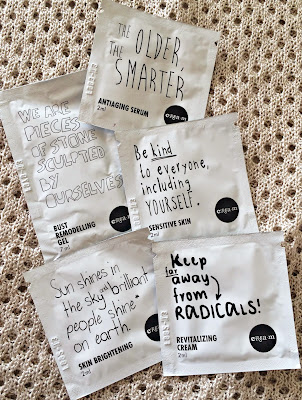 THE
OLDER,
THE
SMARTER.
ANTIAGING SERUM
2ml
erga.m
WE ARE
PIECES
OF STONE
SCULPTED
BY
OURSELVES
BUST
REMODELLING
GEL
2ml
Be kind
to everyone,
including
YOURSELF.
SENSITIVE SKIN
2ml
erga.m
Sun shines in
the sky and brilliant
people shine
on earth.
SKIN BRIGHTENING
2ml
Keep
far
away
from
RADICALS!
REVITALIZING
CREAM
2ml
erga.m